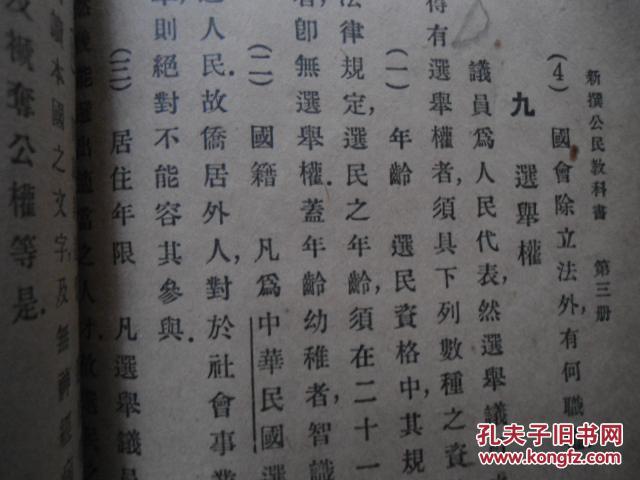 新撰公民教科書 第三册
(4) 國會除立法外,有何職
九 選舉權
議員爲人民代表,然選舉議
得有選舉權者,須具下列數種之資
(一) 年齡 選民資格中,其規
法律規定,選民之年齡,須在二十一
者,卽無選舉權.蓋年齡幼稚者,智識
(二) 國籍 凡爲中華民國選
人民.故僑居外人,對於社會事業
則絕對不能容其參與.
(三) 居住年限 凡選舉議員
能選出適當之人才.故選
讀本國之文字,及無神經
及褫奪公權等是.
孔夫子旧书网
www.kongfz.com